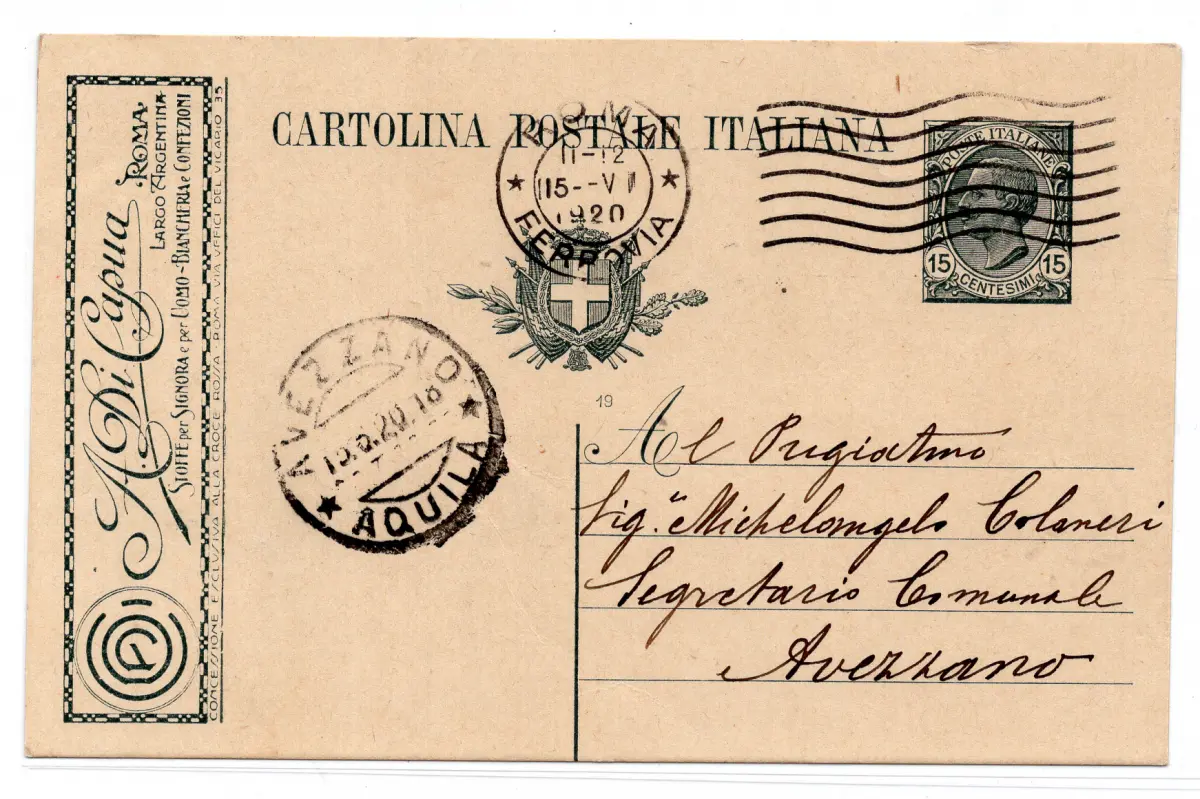 CARTOLINA POSTALE ITALIANA
ROMA
11-12
15--VI
1920
FERROVIA
POSTE ITALIANE
15 15
CENTESIMI
A. Di Capua
ROMA
LARGO ARGENTINA
STOFFE per SIGNORA e per UOMO - BIANCHERIA e CONFEZIONI
CONCESSIONE ESCLUSIVA ALLA CROCE ROSSA - ROMA VIA UFFICI DEL VICARIO 35
AVEZZANO
6.20.18
AQUILA
19
Al Pregiatmo
Sig.r Michelangelo Colaneri
Segretario Comunale
Avezzano